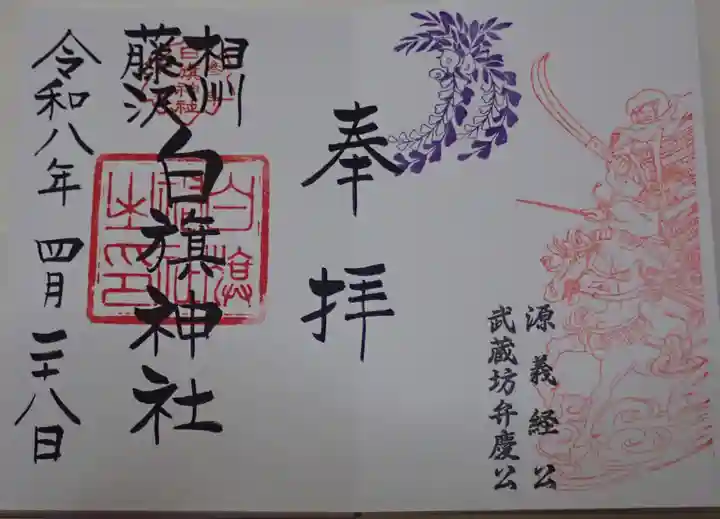 源義経公
武蔵坊弁慶公
奉拝
相州
藤沢
白旗神社
令和八年 四月 二十八日